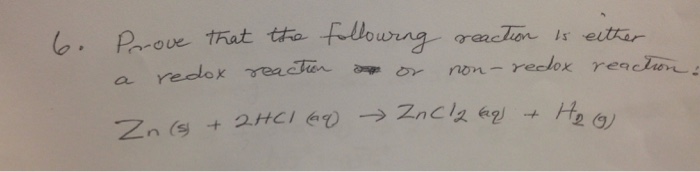 6. Prove that the following reaction is either
a redox reaction or non-redox reaction:
Zn (s) + 2HCl (aq) → ZnCl2 (aq) + H2 (g)